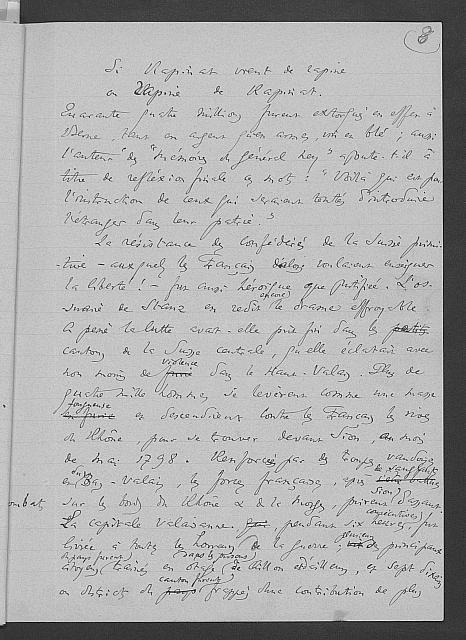 8
Si Rapinat vient de rapine
ou Rapine de Rapinat.
Quarante quatre millions furent extorqués en effet à
Berne, tant en argent qu'en armes, vin et blé ; aussi
l'auteur des "Mémoires du général Ney" ajoute-t-il à
titre de réflexion finale ces mots : "Voilà qui est pour
l'instruction de ceux qui seraient tentés d'introduire
l'étranger dans leur patrie."
La résistance des Confédérés de la Suisse primi-
tive - auxquels les Français voulaient enseigner
la liberté ! - fut aussi héroïque que justifiée. L'os-
suaire de Stanz en redit encore le drame effroyable
A peine la lutte avait-elle pris fin dans les petits
cantons de la Suisse centrale, qu'elle éclatait avec
violence
non moins de furie dans le Haut-Valais. Plus de
quatre mille hommes se levèrent comme une masse
fougueuse
en furie et descendirent contre les Français les rives
du Rhône, pour se trouver devant Sion, au mois
de mai 1798. Renforcées par des troupes vaudoises
et du Bas-Valais, les forces françaises, après de sanglants
combats sur les bords du Rhône & de la Morge, prirent d'assaut
Sion
La capitale valaisanne, pendant six heures consécutives, fut
livrée à toutes les horreurs de la guerre ; plusieurs des principaux
du pays furent (dans les prisons)
citoyens traînés en otage de Chillon et d'ailleurs, et sept dixains
canton furent
ou districts du pays frappés d'une contribution de plus